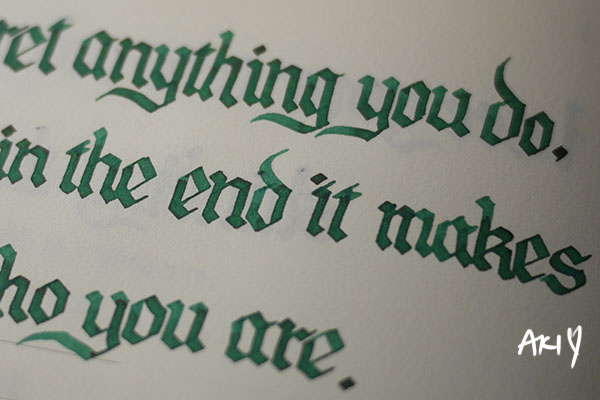 ret anything you do.
in the end it makes
ho you are.